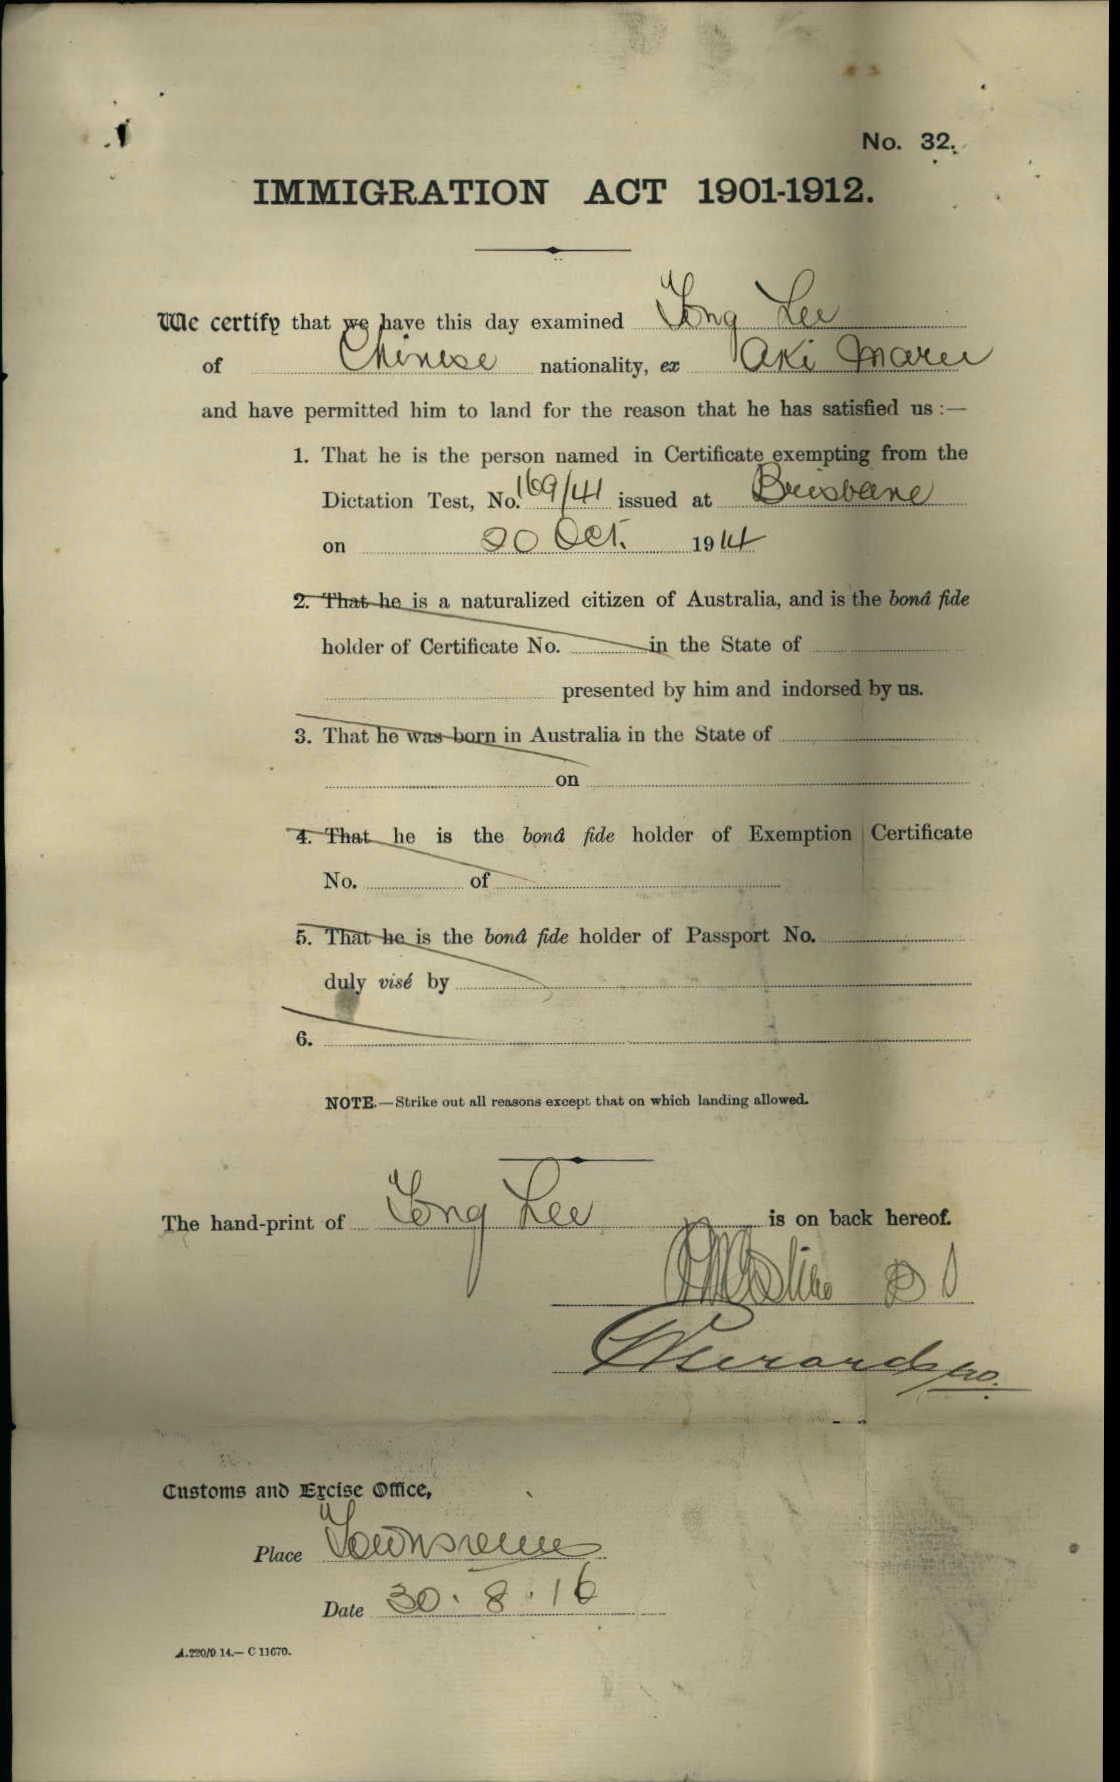 No. 32.
IMMIGRATION ACT 1901-1912.
We certify that we have this day examined Tong Lee
of Chinese nationality, ex Aki Maru
and have permitted him to land for the reason that he has satisfied us :—
1. That he is the person named in Certificate exempting from the
Dictation Test, No. 169/41 issued at Brisbane
on 20 Oct. 1914
2. That he is a naturalized citizen of Australia, and is the bonâ fide
holder of Certificate No. in the State of
presented by him and indorsed by us.
3. That he was born in Australia in the State of
on
4. That he is the bonâ fide holder of Exemption Certificate
No. of
5. That he is the bonâ fide holder of Passport No.
duly visé by
6.
NOTE.—Strike out all reasons except that on which landing allowed.
The hand-print of Tong Lee is on back hereof.
Customs and Excise Office,
Place Townsville
Date 30.8.16
A.220/9.14.— C 11670.